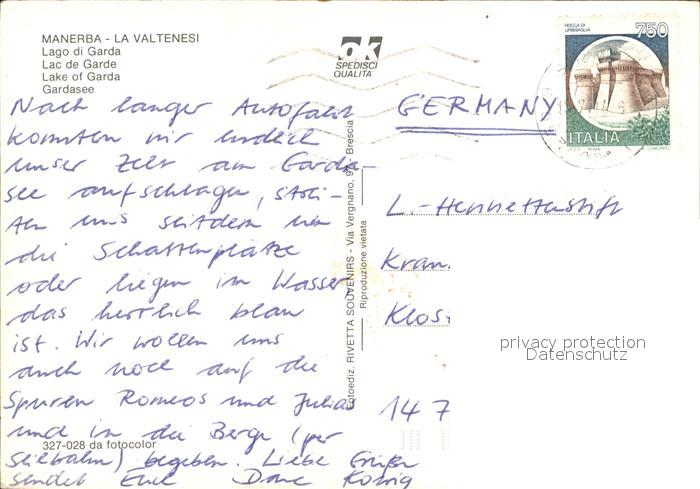 MANERBA - LA VALTENESI
Lago di Garda
Lac de Garde
Lake of Garda
Gardasee
ok
SPEDISCI
QUALITA'
ROCCA DI
URBISAGLIA
750
ITALIA
Nach langer Autofahrt
konnten wir endlich
unser Zelt am Garda-
see aufschlagen,
uns seitdem um
die Schattenplätze
oder liegen im Wasser
das herrlich blau
ist. Wir wollen uns
auch noch auf die
Spuren Romeos und Julias
und in die Berge (per
Seilbahn) begeben. Liebe Grüße
sendet Eure König
327-028 da fotocolor
Fotoediz. RIVETTA SOUVENIRS - Via Vergnano, Brescia
Riproduzione vietata
GERMANY
L.-Henriettenstift
Kran
Klos
14 7
privacy protection
Datenschutz